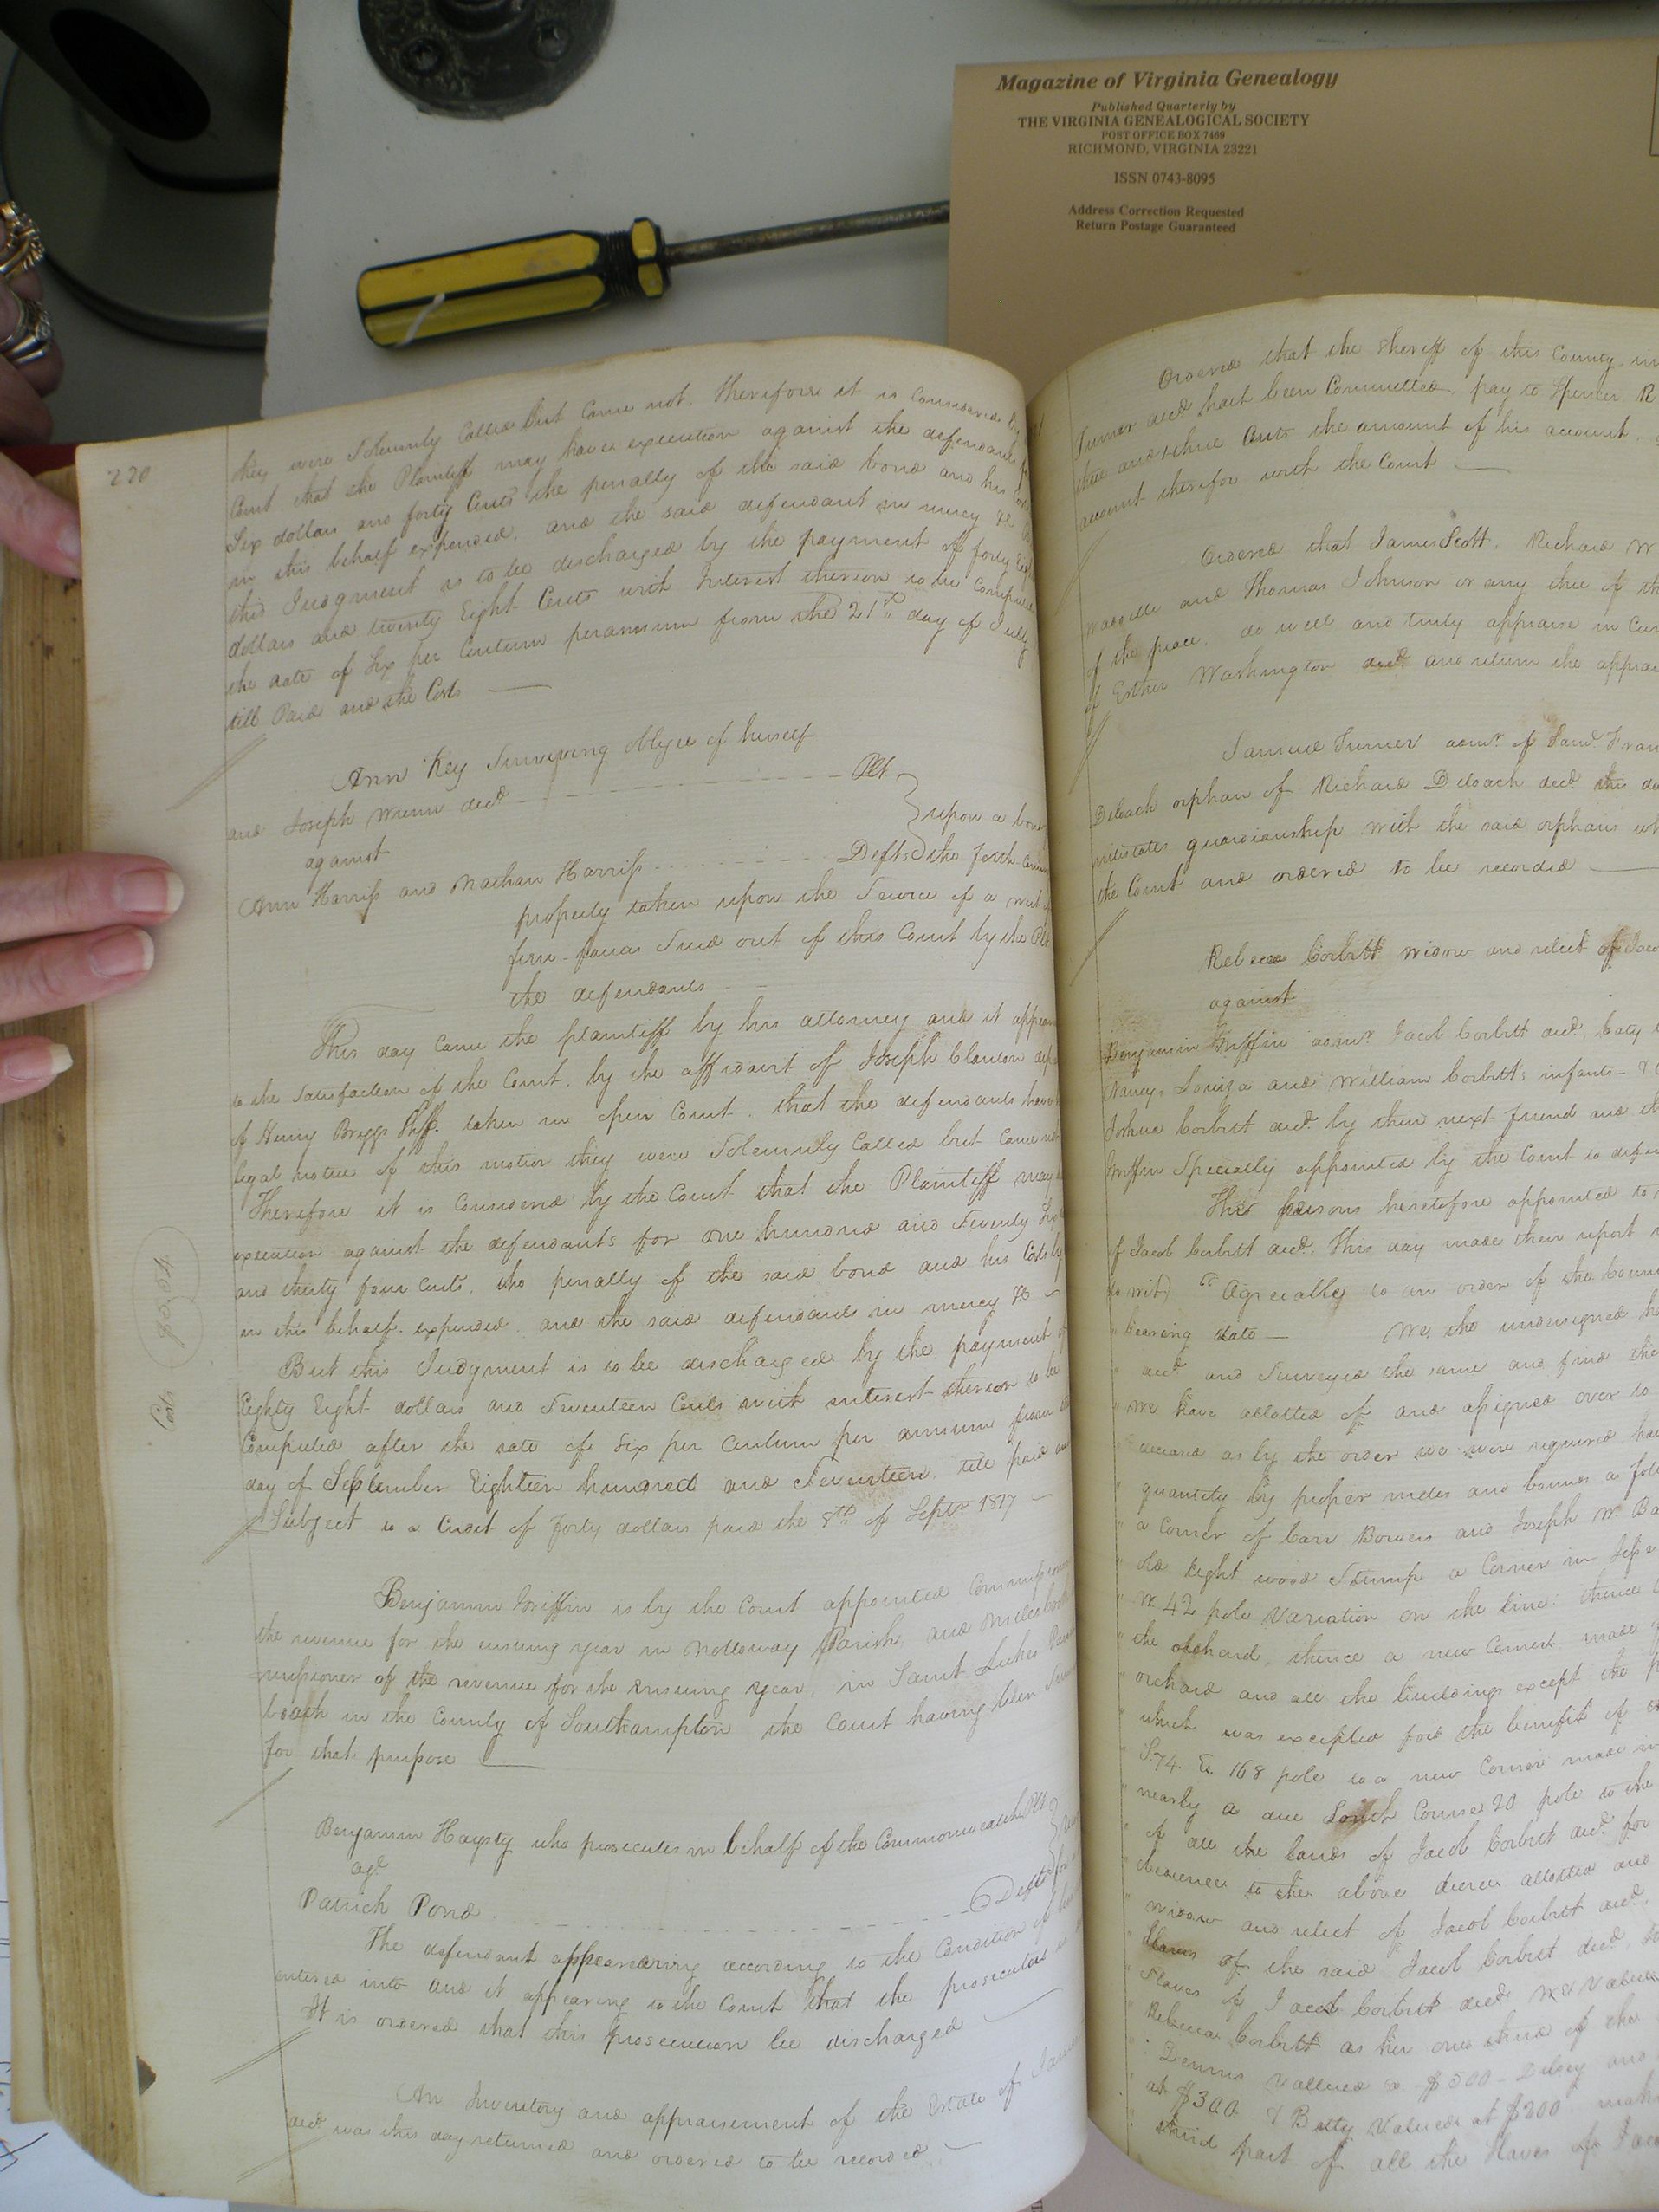 Magazine of Virginia Genealogy
Published Quarterly by
THE VIRGINIA GENEALOGICAL SOCIETY
POST OFFICE BOX 7469
RICHMOND, VIRGINIA 23221
ISSN 0743-8095
Address Correction Requested
Return Postage Guaranteed
220
they were Solemnly Called but Came not. Therefore it is Considered by
Court that the Plaintiff may have execution against the defendants for
Six dollars and forty Cents the penalty of the said bond and his Costs
in this behalf expended, and the said defendant in mercy &c
this Judgment is to be discharged by the payment of forty Eight
dollars and twenty Eight Cents with Interest thereon to be Computed
the rate of Six per Centum perannum from the 21st day of July
till Paid and the Costs
Ann Key Surviving obligee of herself
and Joseph Wrenn decd Plt
against upon a bond
Ann Harriss and Nathan Harriss Defts the forth-coming
property taken upon the Service of a writ of
fieri-facias Sued out of this Court by the Plt
the defendants
This day came the plaintiff by his attorney and it appearing
to the Satisfaction of the Court, by the affidavit of Joseph Clanton
of Henry Briggs Shff. taken in open Court, that the defendants have
legal notice of this motion they were Solemnly Called but Came not
Therefore it is Considered by the Court that the Plaintiff may
execution against the defendants for one hundred and Seventy Six
and thirty four Cents, the penalty of the said bond and his Costs by
in this behalf expended, and the said defendants in mercy &c
But this Judgment is to be discharged by the payment of
Eighty Eight dollars and Seventeen Cents with interest thereon to be
Computed after the rate of Six per Centum per annum from the
day of September Eighteen hundred and Seventeen, till paid and
Subject to a Credit of forty dollars paid the 8th of Septr 1817
Costs
Benjamin Griffin is by the Court appointed Commissioner
the revenue for the ensuing year in Nottoway Parish, and
missioner of the revenue for the ensuing year, in Saint Lukes
both in the County of Southampton the Court having been
for that purpose
Benjamin Haysty who prosecutes in behalf of the Commonwealth Plt
agt
Patrick Pond Deft
The defendant appearing according to the Condition of
entered into and it appearing to the Court that the prosecutor
It is ordered that this prosecution be discharged
An Inventory and appraisement of the Estate of
decd was this day returned and ordered to be recorded
Ordered that the Sheriff of this County, in
Turner decd hath been Committed, pay to Spencer
three and three Cents the amount of his account
account therefor with the Court
Ordered that James Scott, Richard W
and Thomas Johnson or any three of th
of the peace, do well and truly appraise in
of Esther Washington decd and return the appra
Samuel Turner admr of Saml
Deloach orphan of Richard Deloach decd this
intestates guardianship with the said orphans
the Court and ordered to be recorded
Rebecca Corbitt widow and relict of Jaco
against
Benjamin Griffin admr Jacob Corbitt decd, Caty
Nancy, Louiza and William Corbitt, infants
Joshua Corbitt decd by their next friend and
Griffin Specially appointed by the Court to defen
The persons heretofore appointed to
of Jacob Corbitt decd. This day made their report
to wit) "Agreeably to an order of the
bearing date We, the undersigned
decd and Surveyed the same and find the
we have allotted of and assigned over to
decree as by the order we were required
quantity by proper metes and bounds as foll
a Corner of Carr Bowers and Joseph W.
old light wood Stump a Corner in
W. 42 pole Variation on the line: thence
the orchard, thence a new Corner made
orchard and all the buildings except the
which was excepted for the benefit of
S.74. E. 168 pole to a new Corner made
nearly a due South Course 20 pole to the
of all the lands of Jacob Corbitt decd. for
to the above decree allotted and
widow and relict of Jacob Corbitt decd.
Slaves of the said Jacob Corbitt decd,
Slaves of Jacob Corbitt decd
Rebecca Corbitt as her one third of the
Dennis Vallued at $500
at $300 & Betty Valued at $200
third part of all the Slaves of